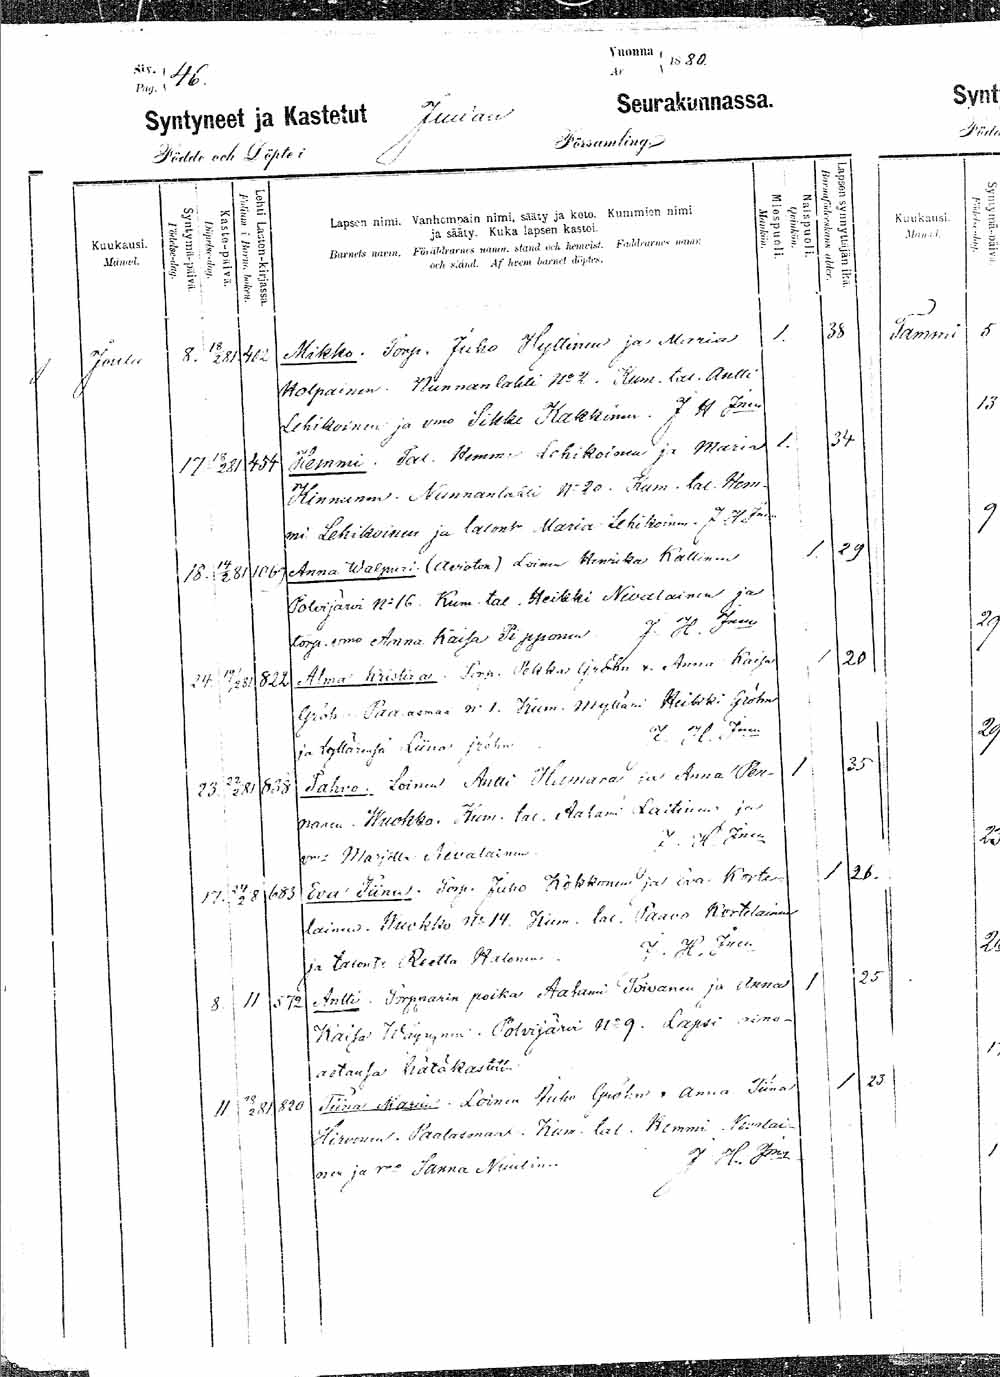 Siv. 46.
Pag.
Vuonna 1880.
År
Syntyneet ja Kastetut Juuan Seurakunnassa.
Födde och Döpte i Församling
Kuukausi.
Månad.
Syntymä-päivä.
Födelsedag.
Kaste-päivä.
Döpelsedag.
Lehti Lasten-kirjassa.
Folium i Barns boken.
Lapsen nimi. Vanhempain nimi, sääty ja koto. Kummien nimi
ja sääty. Kuka lapsen kastoi.
Barnets namn. Föräldrarnes namn, stånd och hemvist. Faddrarnes namn
och stånd. Af hvem barnet döptes.
Miespuoli.
Mankön.
Naispuoli.
Qvinkön.
Lapsen synnyttäjän ikä.
Barnaföderskans ålder.
Joulu 8. 13/2 81 402 Mikko. Torp. Juho Hyttinen ja Maria 1. 38
Holpainen. Nunnanlahti No 2. Kum. tal. Antti
Lehikoinen ja vmo Sikke Kakkinen. J H
17 13/2 81 454 Hemmi. Tal. Hemmi Lehikoinen ja Maria 1. 34
Kinnunen. Nunnanlahti No 20. Kum. tal. Hem-
mi Lehikoinen ja talont. Maria Lehikoinen. J. H.
18. 14/2 81 Anna Walpuri. (Avioton) Loinen Henrika Kallinen 1. 29
Polvijärvi No 16. Kum. tal. Heikki Nevalainen ja
torp. vmo Anna Kaisa Pipponen J. H.
24 81 822 Alma Kristina. Torp. Pekka Gröhn & Anna Kaisa 1 20
Gröhn. Paalasmaa No 1. Kum. Mylläri Heikki Gröhn
ja Liina Gröhn J. H.
23. 22/2 81 Tahvo. Loinen Antti ja Anna Pen- 1 35
nanen. Huokko. Kum. tal. Aatami Laitinen ja
vmo Nevalainen J. H.
17. 24/2 8 683 Eva Tiina. Torp. Juho Kokkonen ja Eva Korte- 1 26.
lainen. Huokko No 14. Kum. tal. Paavo Kortelainen
ja talont. Reetta Halonen. J. H.
8. 11 572 Antti. Torpparin poika Aatami Toivanen ja Anna 1 25
Kaisa Polvijärvi No 9. Lapsi
hätäkastettu
11 81 820 Tiina Maria. Loinen Juho Gröhn & Anna Tiina 1 23
Hirvonen. Paalasmaa. Kum. tal. Hemmi Nevalai-
nen ja vmo Sanna Nuutinen J H.
Synt
Kuukausi.
Månad.
Syntymä-päivä
Födelsedag.
Tammi 5
13
9
29
29
23